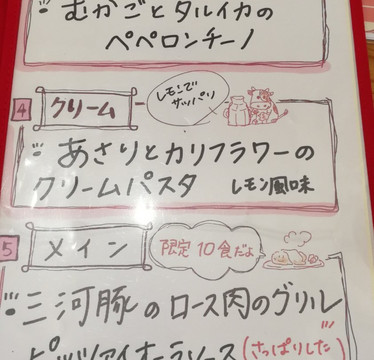 むかごとタルイカの
ペペロンチーノ
4 クリーム
レモンで
サッパリ
あさりとカリフラワーの
クリームパスタ レモン風味
5 メイン
限定10食だよ
三河豚のロース肉のグリル
ピッツァイオーラソース(さっぱりした